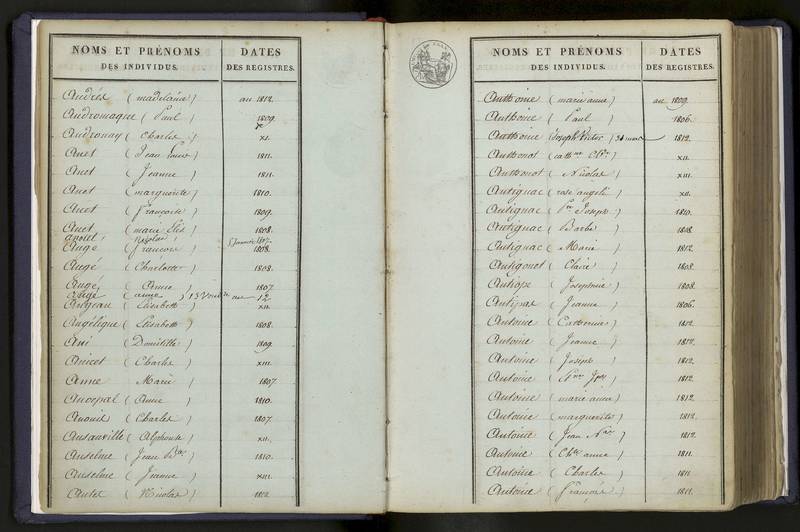 NOMS ET PRÉNOMS DES INDIVIDUS. DATES DES REGISTRES.
Andrés (madelaine) an 1812.
Andromaque (Paul) 1809
Andronay (Charles) XI.
Anet (Jean Louis) 1811.
Anet (Jeanne) 1811.
Anet (marguerite) 1810.
Anet (françoise) 1809.
Anet (marie Elis) 1808.
Anolet (Nicolas) 5 Janvier 1807.
Angé (françoise) 1808.
Angé (Charlotte) 1808.
Angé (Anne) 1807
Angé (anne) 13 an 12
Angeau (Elisabeth) XII.
Angélique (Elisabeth) 1808.
Ani (Domitille) 1809.
Anicet (Charles) XIII.
Anne Marie 1807
(Anne) 1810.
Anouil (Charles) 1807.
Ansauville (Alphonse) XII.
Anselme (Jean Bte) 1810.
Anselme (Jeanne) XIII.
Antet (Nicolas) 1812
NOMS ET PRÉNOMS DES INDIVIDUS. DATES DES REGISTRES.
Anthoine (marie anne) an 1809.
Anthoine (Paul) 1806.
Anthoine (Joseph Victor) 31 mars 1812.
Anthonot XII.
Anthonot (Nicolas) XIII.
Antignac (rose angeli) XII.
Antignac (Joseph) 1810.
Antignac (Barbe) 1808.
Antignac (Marie) 1812.
Antigonot (Claire) 1808.
Antiope (Josephine) 1808.
Antipas (Jeanne) 1806.
Antoine (Catherine) 1812.
Antoine (Jeanne) 1812.
Antoine (Joseph) 1812.
Antoine 1812.
Antoine (marie anne) 1812.
Antoine (marguerite) 1812.
Antoine (Jean Nas) 1812.
Antoine (anne) 1811.
Antoine (Charles) 1811.
Antoine (françois) 1811.